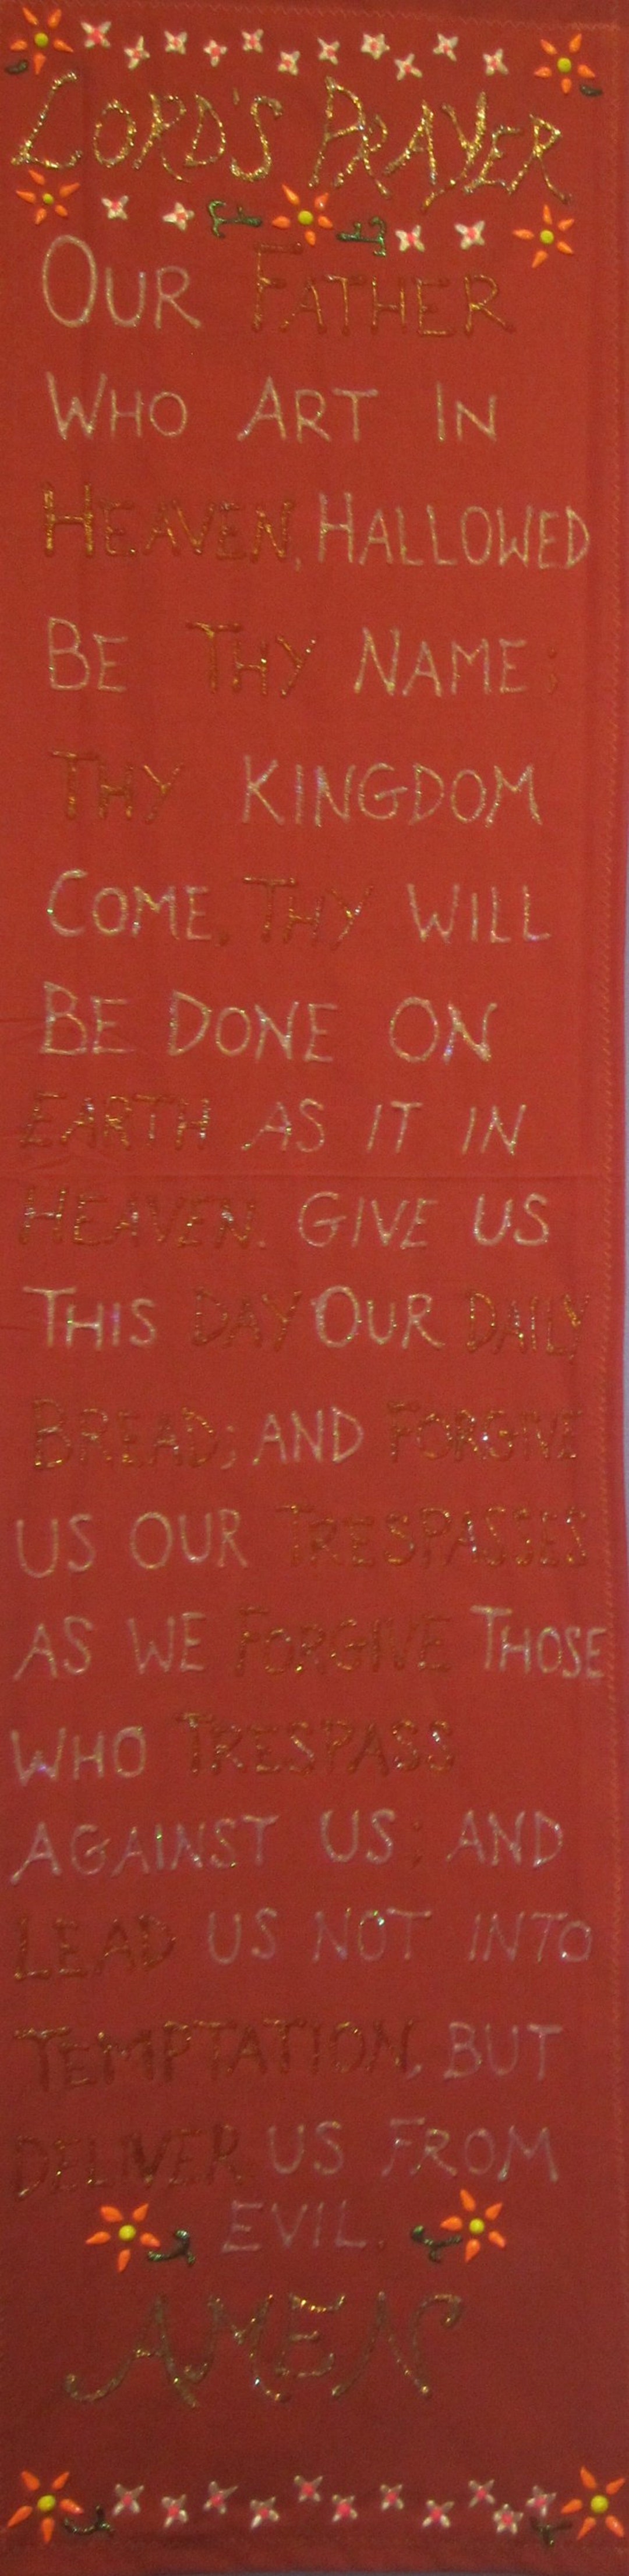 LORD'S PRAYER
OUR FATHER
WHO ART IN
HEAVEN, HALLOWED
BE THY NAME;
THY KINGDOM
COME, THY WILL
BE DONE ON
EARTH AS IT IN
HEAVEN. GIVE US
THIS DAY OUR DAILY
BREAD; AND FORGIVE
US OUR TRESPASSES
AS WE FORGIVE THOSE
WHO TRESPASS
AGAINST US; AND
LEAD US NOT INTO
TEMPTATION, BUT
DELIVER US FROM
EVIL.
AMEN